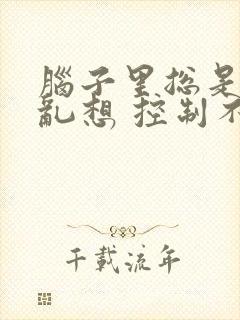 腦子里總是
亂想 控制不
千載流年